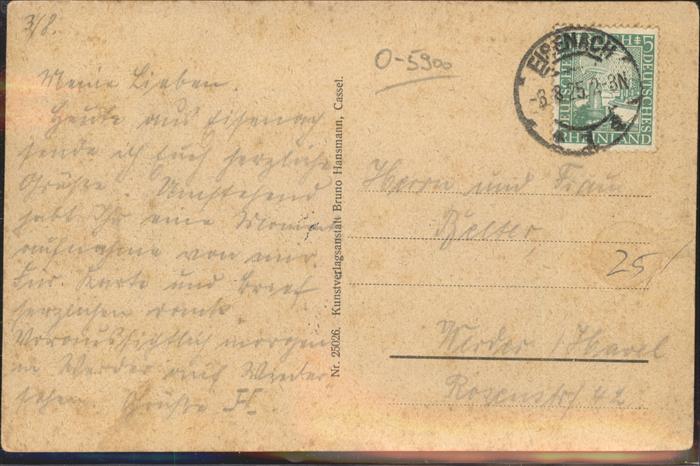 3/8.
Meine Lieben.
Heute aus Eisenach
sende ich Euch herzliche
Grüße. Umstehend
habt Ihr eine Moment
aufnahme von mir.
Für Karte und Brief
herzlichen Dank.
Voraussichtlich morgen
in Werder auf Wieder
sehen. Grüße H.
Nr. 25026. Kunstverlagsanstalt Bruno Hansmann, Cassel.
O-5900
EISENACH
-3.8.25. 2-3N
5 DEUTSCHES
RHEINLAND
Herrn und Frau
25/
Werder / Havel
Rosenstr 42